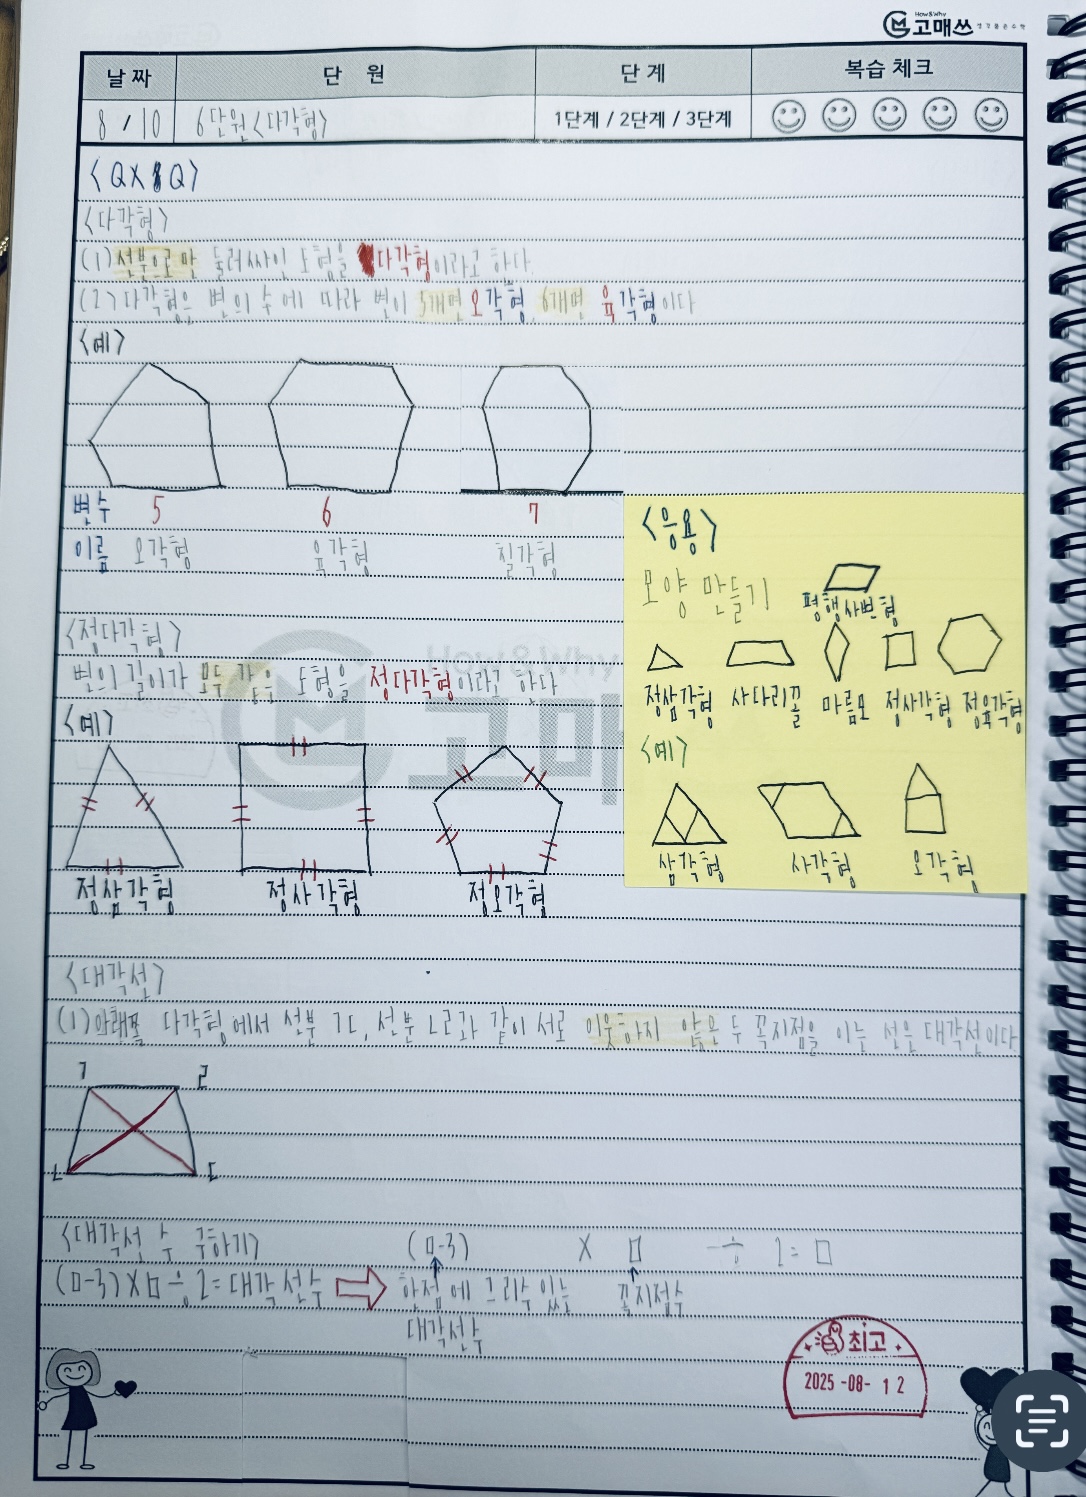 How&Why
고매쓰 생각을콘수학
날짜 단원 단계 복습 체크
8 / 10 6단원<다각형> 1단계 / 2단계 / 3단계
<QX Q>
<다각형>
(1) 선분으로만 둘러싸인 도형을 다각형이라고 하다.
(2) 다각형은 변의 수에 따라 변이 5개면 오각형, 6개면 육각형이다
<예>
변수 5 6 7
이름 오각형 육각형 칠각형
<정다각형>
변의 길이가 모두 같은 도형을 정다각형이라고 하다
<예>
정삼각형 정사각형 정오각형
<응용>
모양 만들기
평행사변형
정삼각형 사다리꼴 마름모 정사각형 정육각형
<예>
삼각형 사각형 오각형
How&Why
고매
<대각선>
(1) 아래쪽 다각형에서 선분 ㄱㄷ, 선분 ㄴㄹ과 같이 서로 이웃하지 않은 두 꼭지점을 이는 선은 대각선이다
ㄱ ㄹ
ㄴ ㄷ
<대각선 수 구하기> (□-3) X □ ÷ 2 = □
(□-3)X□÷2=대각선수 한점에 그릴수 있는 꼭지점수
대각선수
최고
2025-08-12